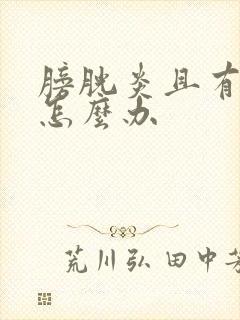 膀胱炎且有
怎麼办
荒川弘田中芳